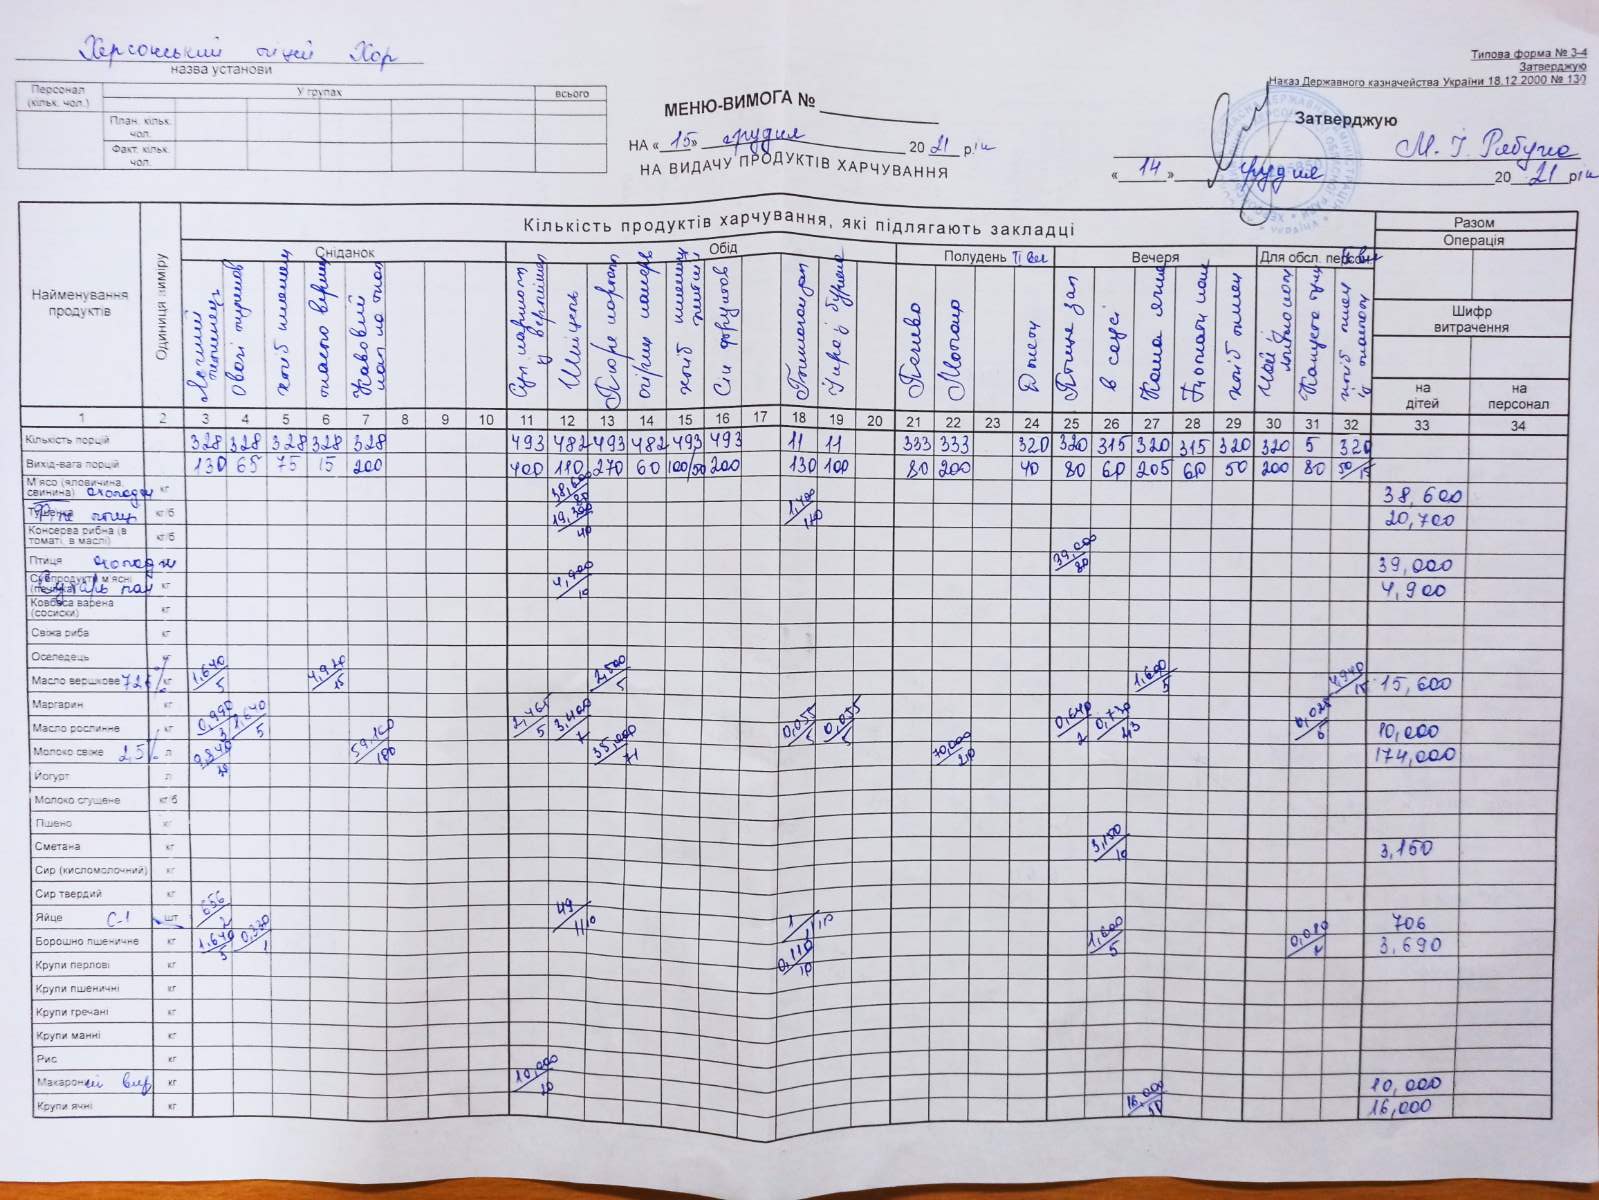 Херсонський ліцей Хор
назва установи
Типова форма № 3-4
Затверджую
Наказ Державного казначейства України 18.12.2000 № 130
Персонал (кільк. чол.)
У групах
всього
План. кільк. чол.
Факт. кільк. чол.
МЕНЮ-ВИМОГА №
НА « 15 » грудня 20 21 рік
НА ВИДАЧУ ПРОДУКТІВ ХАРЧУВАННЯ
Затверджую
« 14 » грудня 20 21 рік
Найменування продуктів
Одиниця виміру
Кількість продуктів харчування, які підлягають закладці
Разом
Операція
Сніданок
Обід
Полудень ІІ веч
Вечеря
Для обсл. персон
Шифр витрачення
на дітей
на персонал
хліб пшенич
масло вершк
Суп
Шніцель
Пюре картоп
Печиво
Молоко
Птиця зап
в соусі
Каша ячна
1 2 3 4 5 6 7 8 9 10 11 12 13 14 15 16 17 18 19 20 21 22 23 24 25 26 27 28 29 30 31 32 33 34
Кількість порцій 328 328 328 328 328 493 482 493 482 493 493 11 11 333 333 320 320 315 320 315 320 320 5 320
Вихід-вага порцій 130 65 75 15 200 400 110 270 60 100/50 200 130 100 80 200 40 80 60 205 60 50 200 80 50/15
М'ясо (яловичина, свинина) охолодж кг 38,600/80 38,600
Тушенка кг/б 19,300/40 1,400/120 20,700
Консерва рибна (в томаті, в маслі) кг/б
Птиця охолодж 39,000/80 39,000
Субпродукти м'ясні (печінка) Сухарь пан кг 4,900/10 4,900
Ковбаса варена (сосиски) кг
Свіжа риба кг
Оселедець кг
Масло вершкове 72% кг 1,640/5 4,920/15 2,500/5 1,600/5 4,940/15 15,600
Маргарин
Масло рослинне кг 0,990/3 1,640/5 2,465/5 3,400/7 0,055/5 0,055/5 0,640/2 0,025/5 10,000
Молоко свіже 2,5% л 59,160/180 35,000/71 70,000/210 174,000
Йогурт л
Молоко сгущене кг/б
Пшено кг
Сметана кг 3,150/10 3,150
Сир (кисломолочний) кг
Сир твердий кг
Яйце С-1 шт 656/2 49/1/10 1/1/10 706
Борошно пшеничне кг 1,640/5 0,330/1 0,110/10 1,600/5 3,690
Крупи перлові кг
Крупи пшеничні кг
Крупи гречані кг
Крупи манні кг
Рис кг
Макарони кг 10,000/20 10,000
Крупи ячні кг 16,000/50 16,000